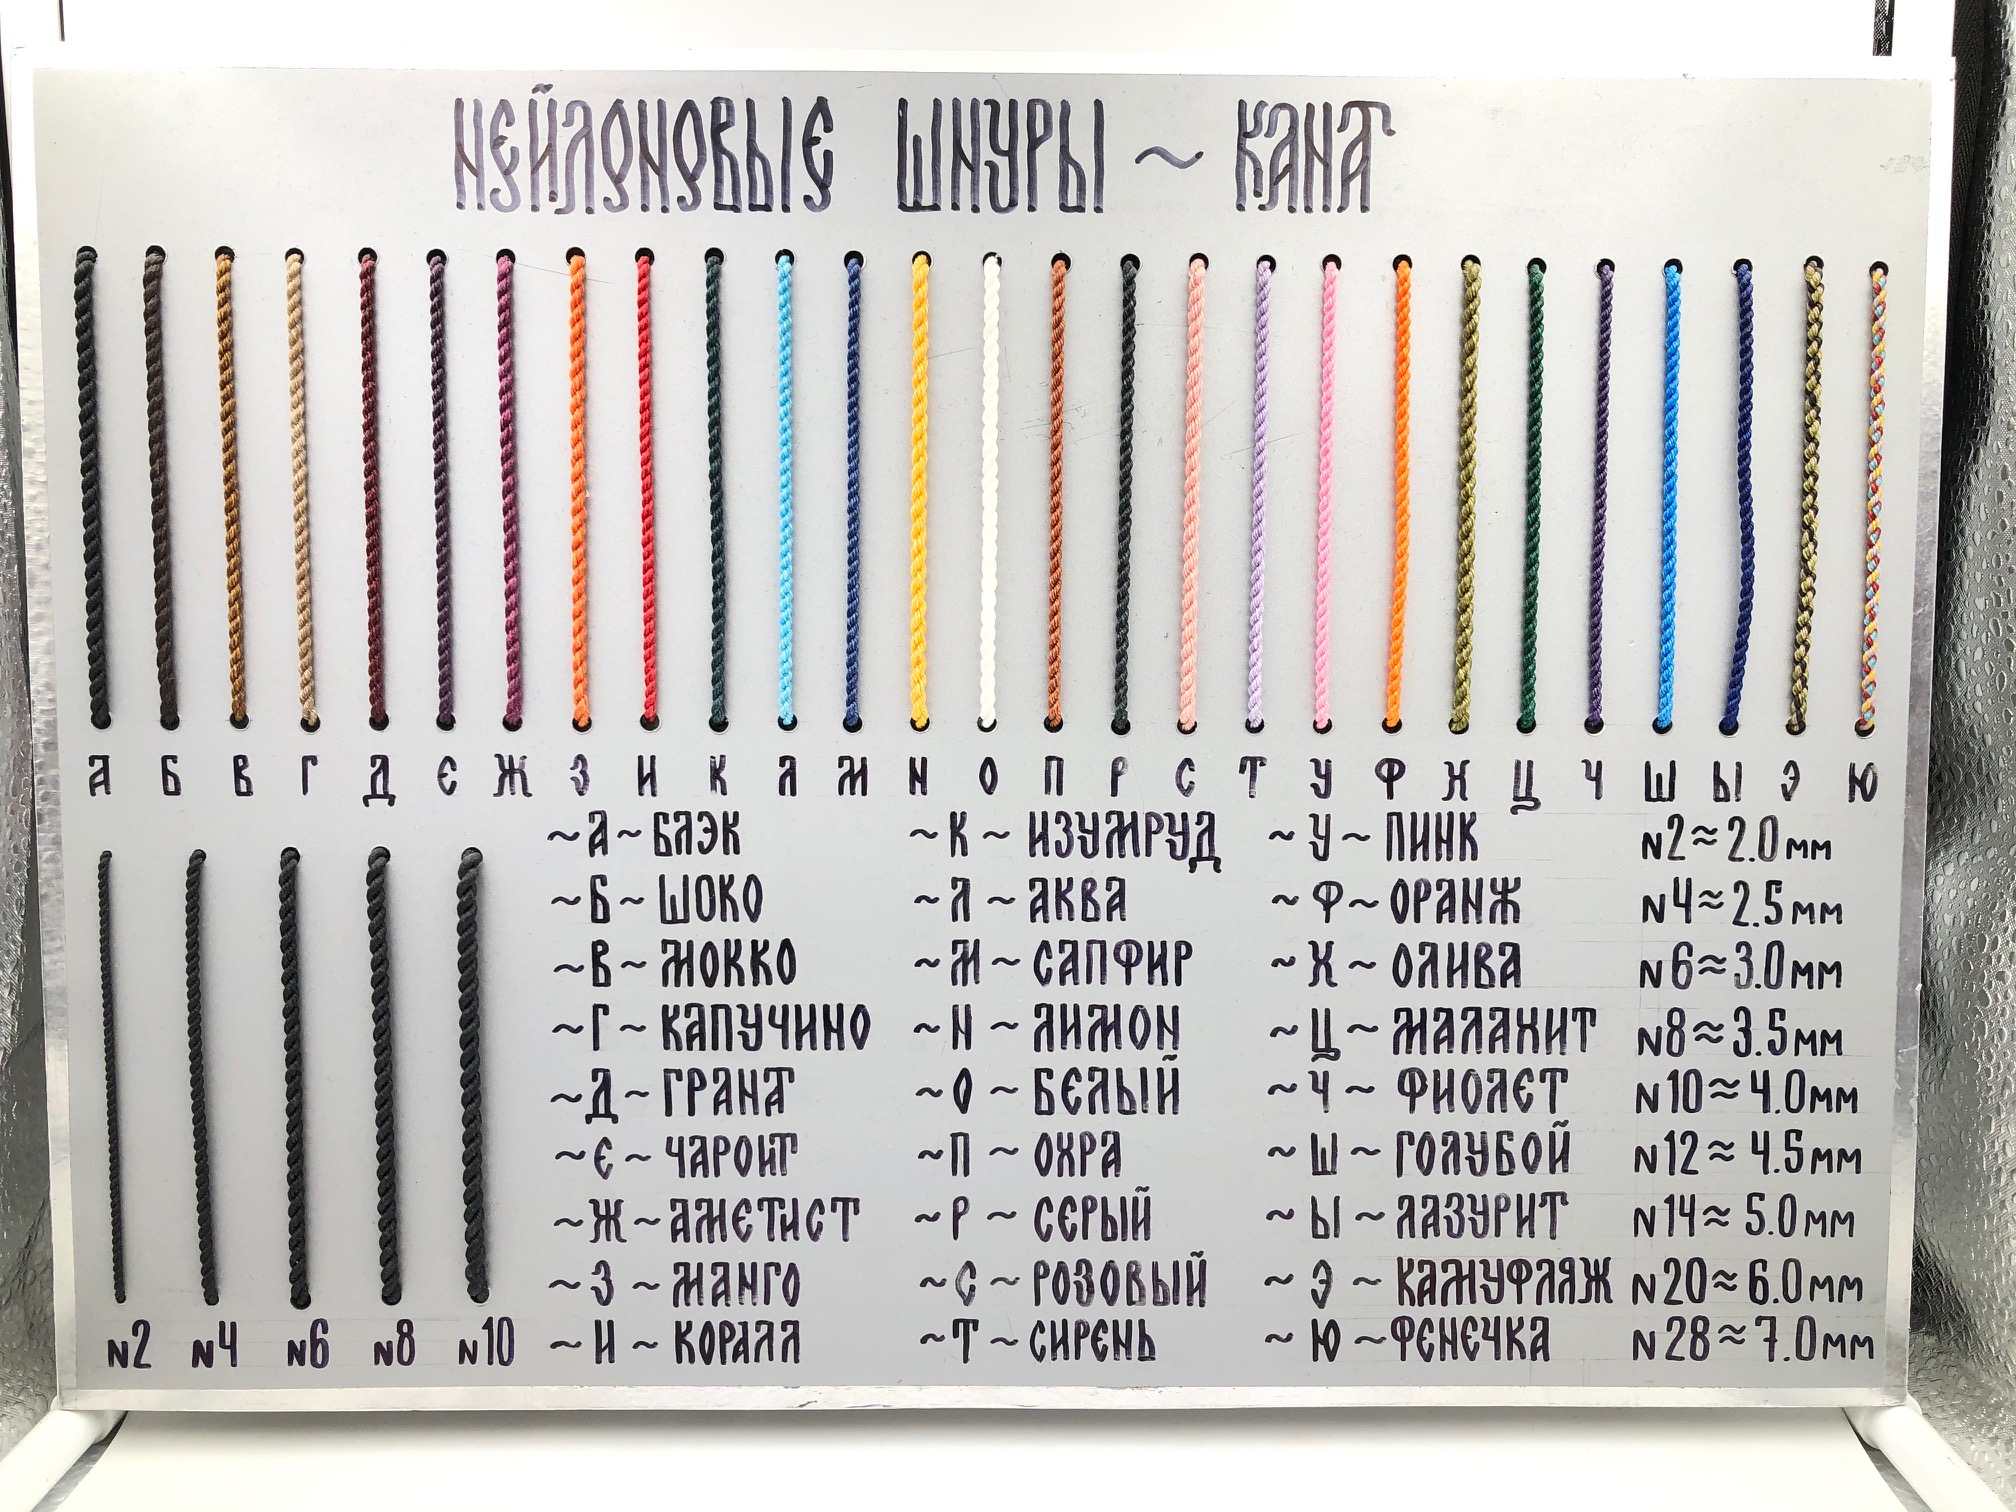 НЕЙЛОНОВЫЕ ШНУРЫ ~ КАНАТ
А Б В Г Д Є Ж З И К Л М N О П Р С Т У Ф Х Ц Ч Ш Ы Э Ю
~ А ~ БЛЭК
~ Б ~ ШОКО
~ В ~ МОККО
~ Г ~ КАПУЧИНО
~ Д ~ ГРАНАТ
~ Є ~ ЧАРОИТ
~ Ж ~ АМЄТИСТ
~ З ~ МАНГО
~ И ~ КОРАЛЛ
~ К ~ ИЗУМРУД
~ Л ~ АКВА
~ М ~ САПФИР
~ N ~ ЛИМОN
~ О ~ БЄЛЫЙ
~ П ~ ОХРА
~ Р ~ СЄРЫЙ
~ С ~ РОЗОВЫЙ
~ Т ~ СИРЄNЬ
~ У ~ ПИНК
~ Ф ~ ОРАНЖ
~ Х ~ ОЛИВА
~ Ц ~ МАЛАХИТ
~ Ч ~ ФИОЛЄТ
~ Ш ~ ГОЛУБОЙ
~ Ы ~ ЛАЗУРИТ
~ Э ~ КАМУФЛЯЖ
~ Ю ~ ФЄНЄЧКА
N2 ≈ 2.0 мм
N4 ≈ 2.5 мм
N6 ≈ 3.0 мм
N8 ≈ 3.5 мм
N10 ≈ 4.0 мм
N12 ≈ 4.5 мм
N14 ≈ 5.0 мм
N20 ≈ 6.0 мм
N28 ≈ 7.0 мм
N2 N4 N6 N8 N10